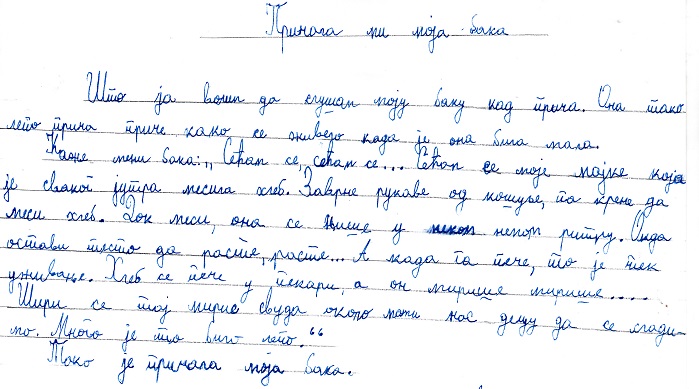 Причала ми моја бака
Што ја волим да слушам моју баку кад прича. Она тако
лепо прича приче како се живело када је она била мала.
Каже мени бака: „Сећам се, сећам се... Сећам се моје мајке која
је сваког јутра месила хлеб. Заврне рукаве од кошуље, па крене да
меси хлеб. Док меси, она се њише у неком ритму. Онда
остави тесто да расте, расте... А када га пече, то је тек
уживање. Хлеб се пече у пекари, а он мирише мирише.....
Шири се тај мирис свуда около мами нас децу да се слади-
мо. Много је то било лепо.“
Тако је причала моја бака.